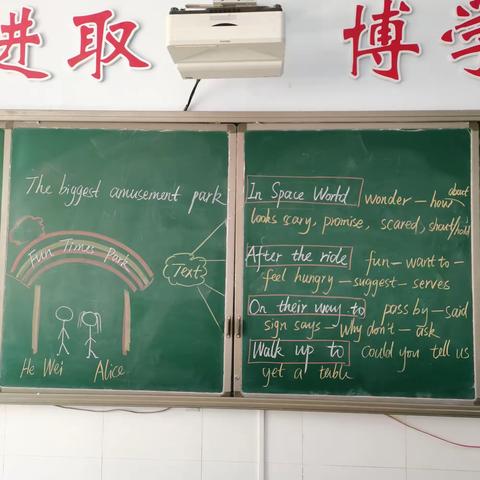 进取 博学
The biggest amusement park
Fun Times Park
Text
He Wei Alice
In Space World wonder — how about
looks scary, promise, scared, shout/hold
After the ride fun — want to —
feel hungry — suggest — serves
On their way to pass by — said
sign says — Why don't — ask
Walk up to could you tell us
get a table